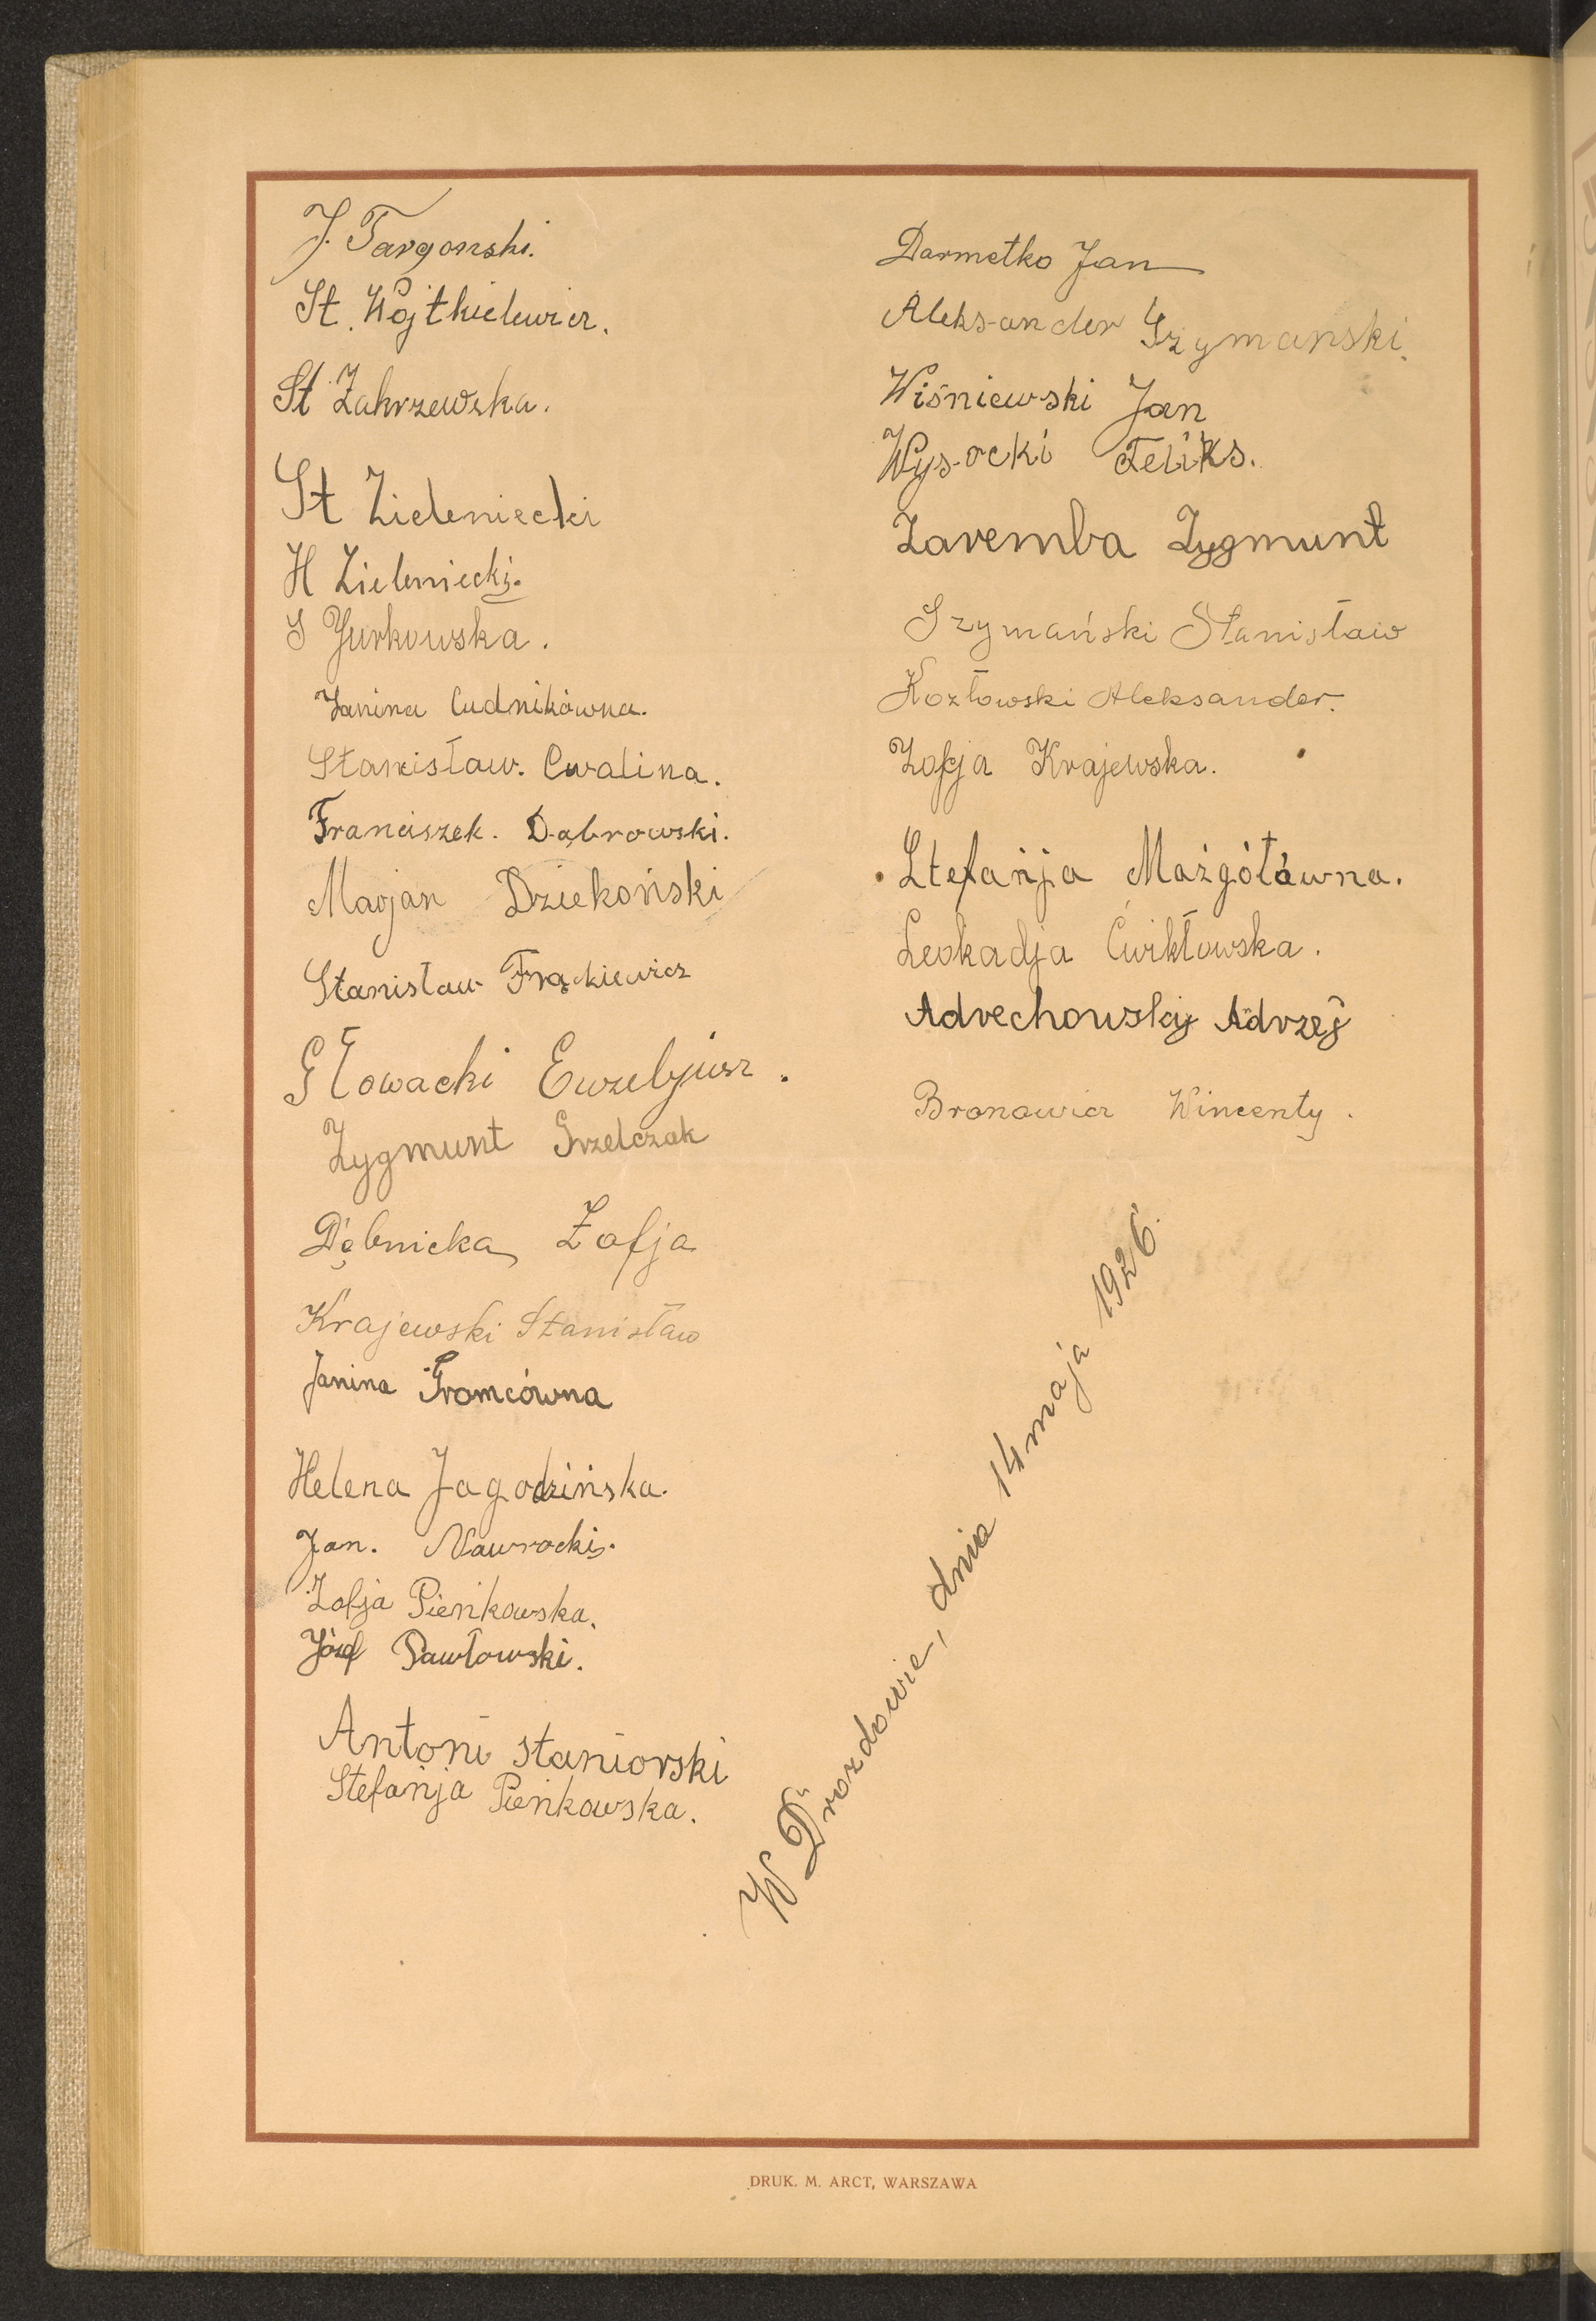 J. Targonski.
St. Wojtkielewicz.
St Zakrzewska.
St Zieleniecki
H Zieleniecki.
S Jurkowska.
Janina Cudnikówna.
Stanisław. Cwalina.
Franciszek. Dąbrowski.
Marjan Dziekoński
Stanisław Frąckiewicz
Głowacki Euzebjusz.
Zygmunt Grzelczak
Dębnicka Zofja
Krajewski Stanisław
Janina Gromcówna
Helena Jagodzińska.
Jan. Nawrocki.
Zofja Pieńkowska.
Józef Pawłowski.
Antoni staniorski
Stefanja Pieńkowska.
Darmetko Jan
Aleksander Szymanski.
Wiśniewski Jan
Wysocki Feliks.
Zaremba Zygmunt
Szymański Stanisław
Kozłowski Aleksander.
Zofja Krajewska.
Stefanja Mażgółówna.
Leokadja Ćwikłowska.
Adrechowski Adrzej
Bronowicz Wincenty.
W Drozdowie, dnia 14 maja 1926.
DRUK. M. ARCT, WARSZAWA